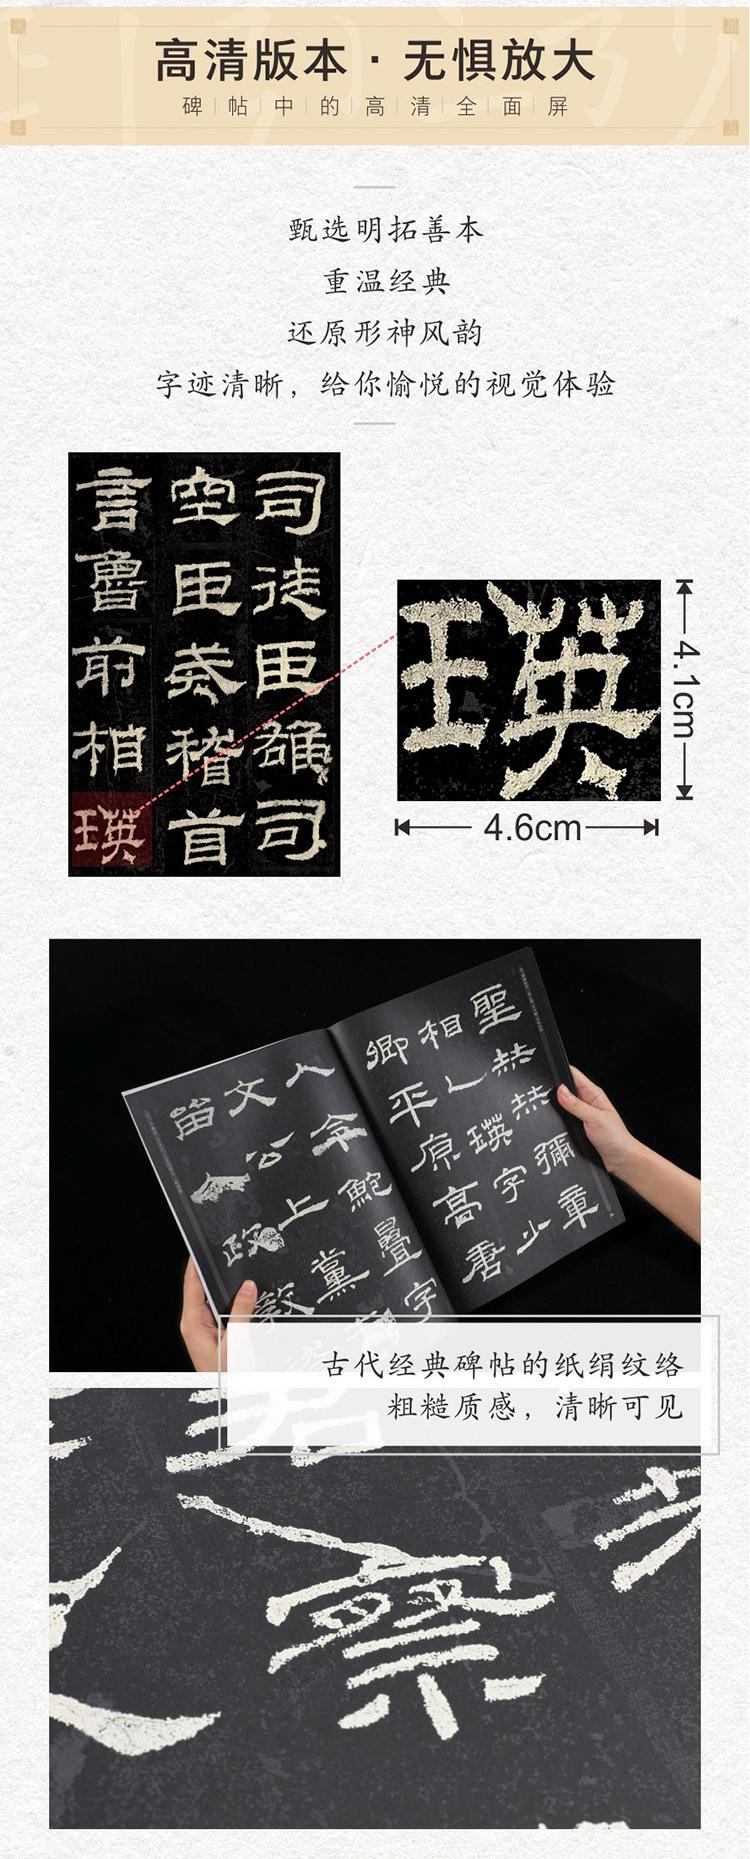 高清版本·无惧放大
碑帖中的高清全面屏
甄选明拓善本
重温经典
还原形神风韵
字迹清晰，给你愉悦的视觉体验
司徒臣雄司
空臣戒稽首
言鲁前相
瑛
瑛
4.1cm
4.6cm
聖
相乀瑛字少
卿平原高唐
人令鮑疊字
文公上黨
政敦
古代经典碑帖的纸绢纹络
粗糙质感，清晰可见
察